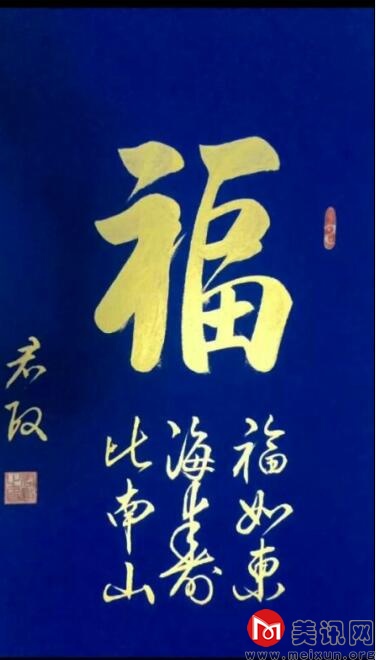 福
福如東
海壽
比南山
君政
美讯网
www.meixun.org